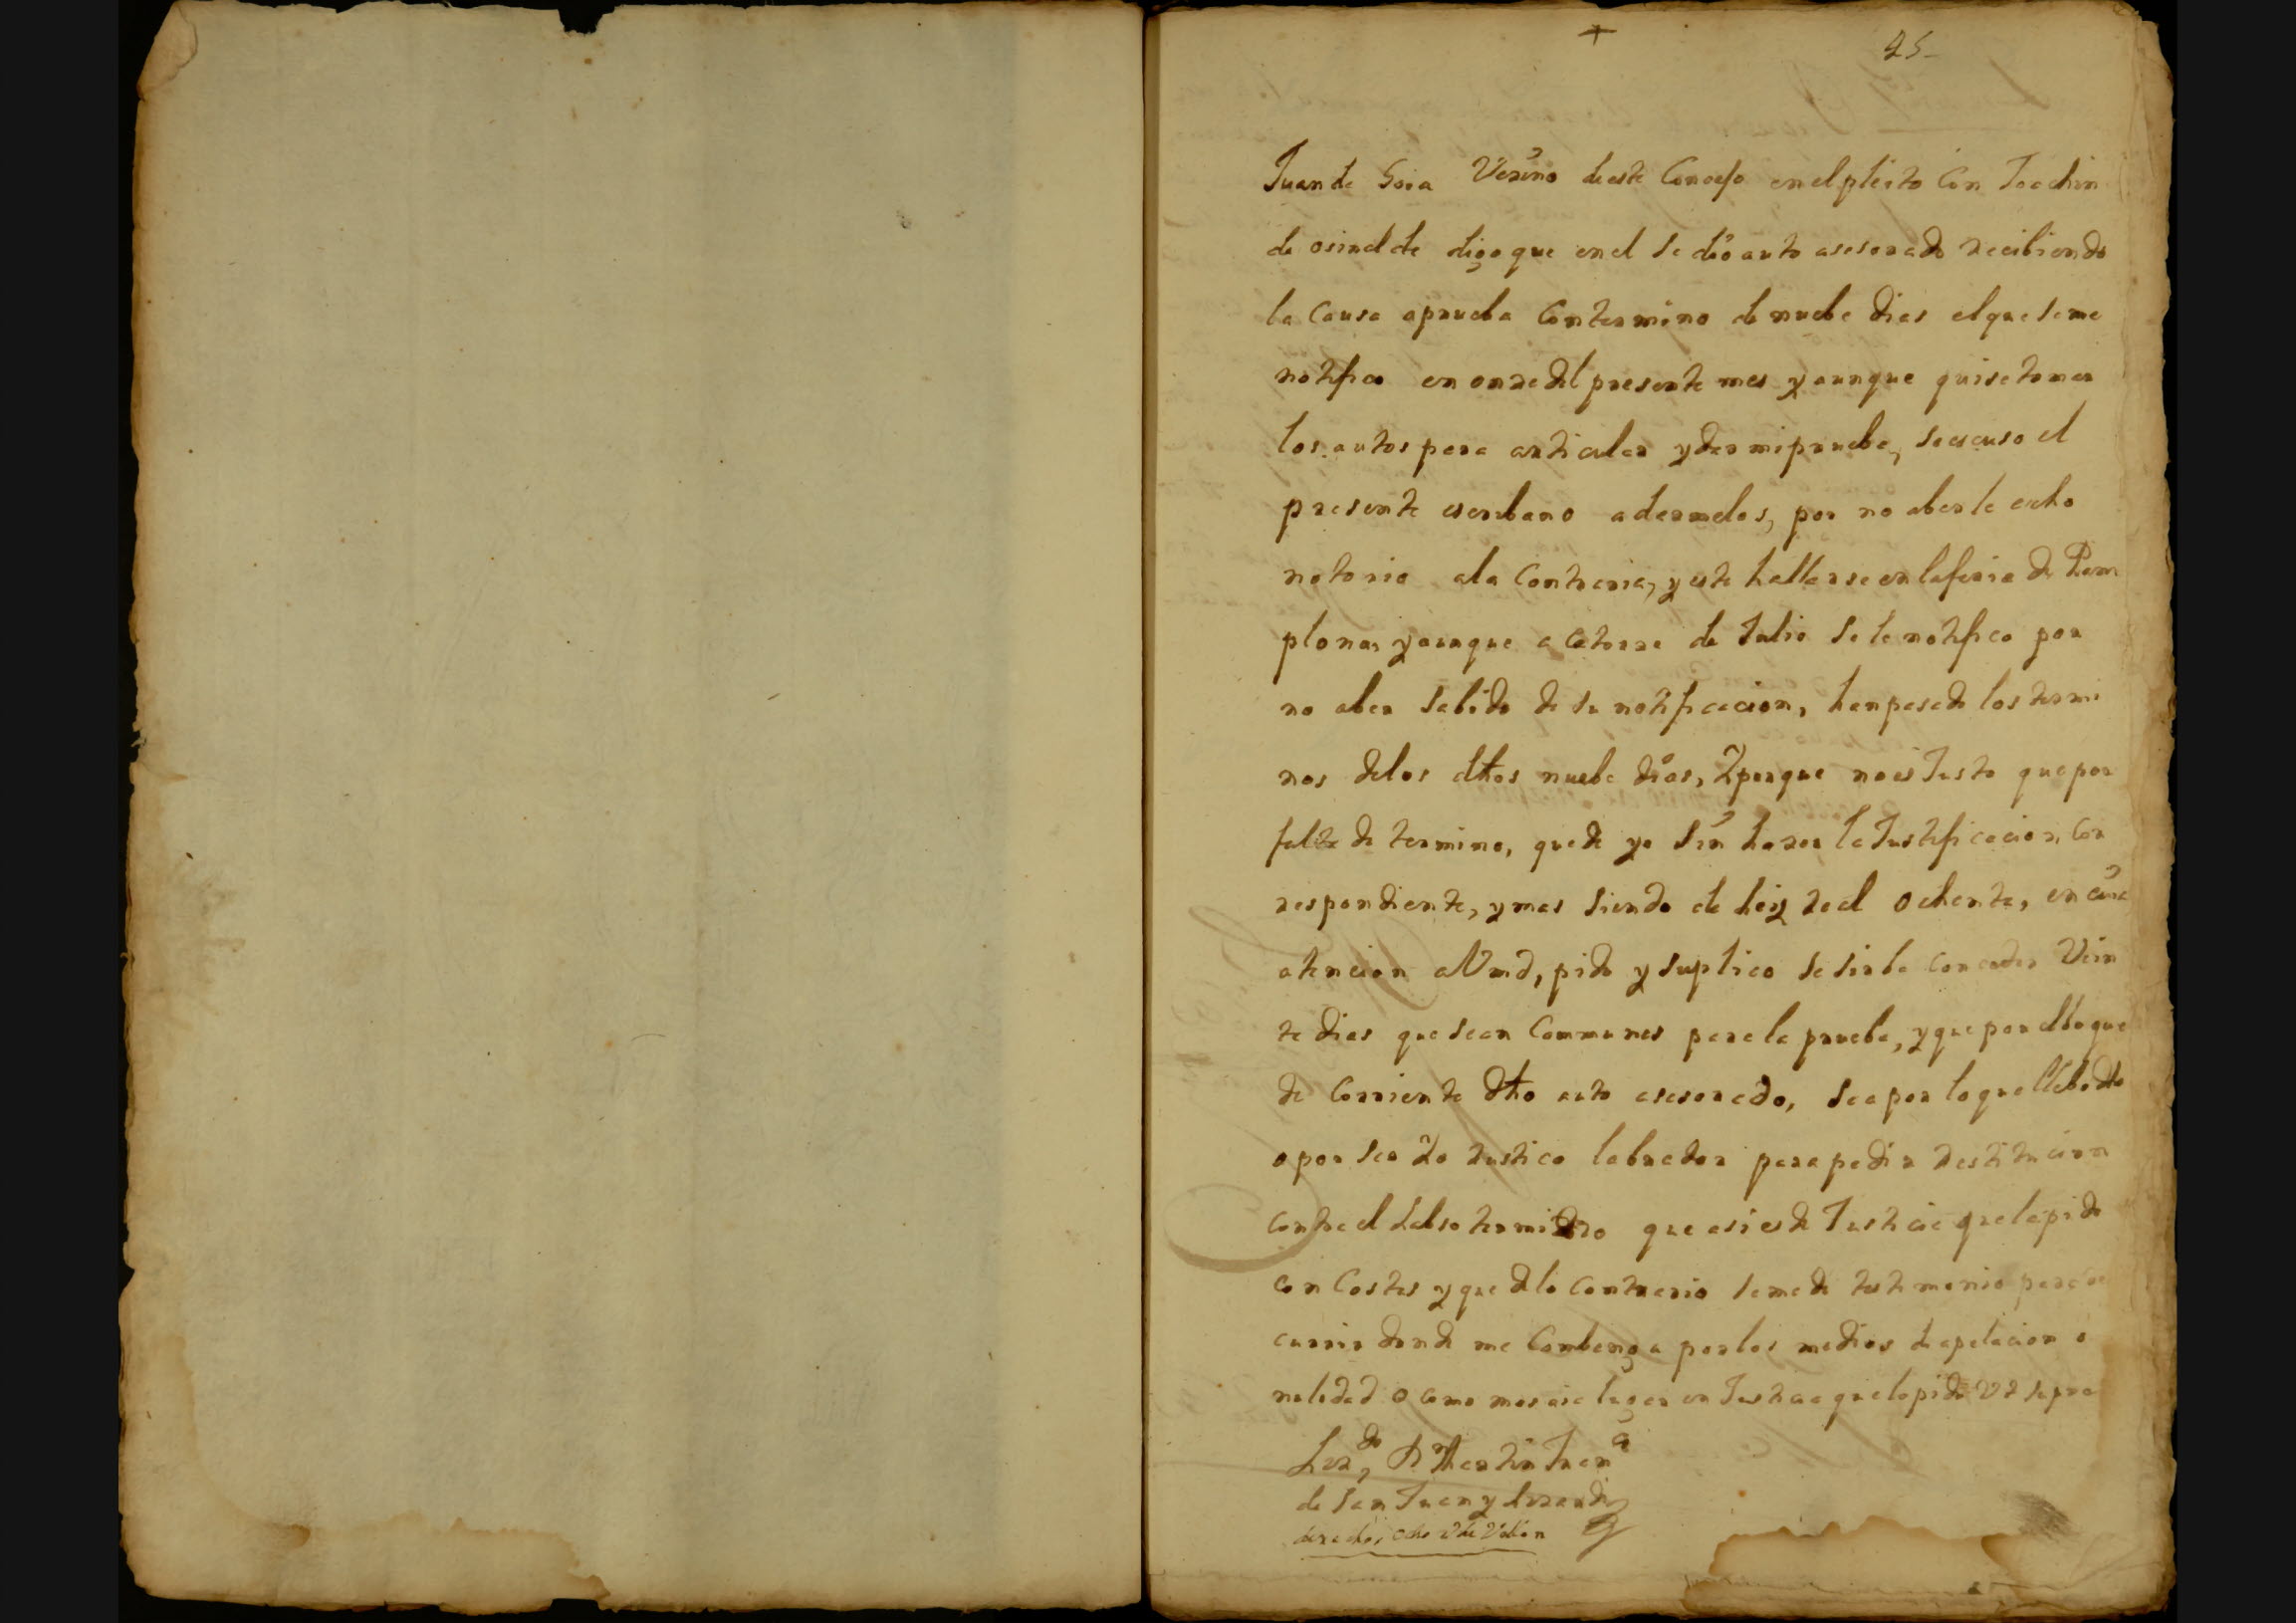 +
45-
Juan de Goia Vezino de este Concejo en el pleito Con Joachin
de osinalde digo que en el se dio auto asesorado recibiendo
la Causa aprueba Contermino de nuebe dias el que seme
notifico en onze del presente mes y aunque quise tomar
los autos para articular y dar mi prueba, se escuso el
presente escribano a darmelos, por no aberle echo
notorio ala Contraria, y este hallarse en la feria de Pam
plona, y aunque a Catorze de Julio se le notifico por
no aber sabido de su notificacion, han pasado los termi
nos de los dhos nuebe dias, Y porque no es Justo que por
falta de termino, quede yo sin hazer la Justificacion, Cor
respondiente, y mas siendo de leiy real ochenta, en cuia
atencion a Vmd, pido y suplico se sirba conceder Vein
te dias que sean Communes para la prueba, y que por ello que
de Corriente dho auto asesorado, sea por lo que llebo dho
o por ser Yo rustico labrador para pedir restitucion
contra el lapso termino que asi es de Justicia que la pido
con Costas y que de lo Contrario se me de testimonio para
currir donde me Conbenga por los medios de apelacion o
nulidad o como mas aia lugar en Justicia que lo pido Vt supra
Lizdo Dn Martin Juan
de San Juan y
derechos ocho Rs de Vellon